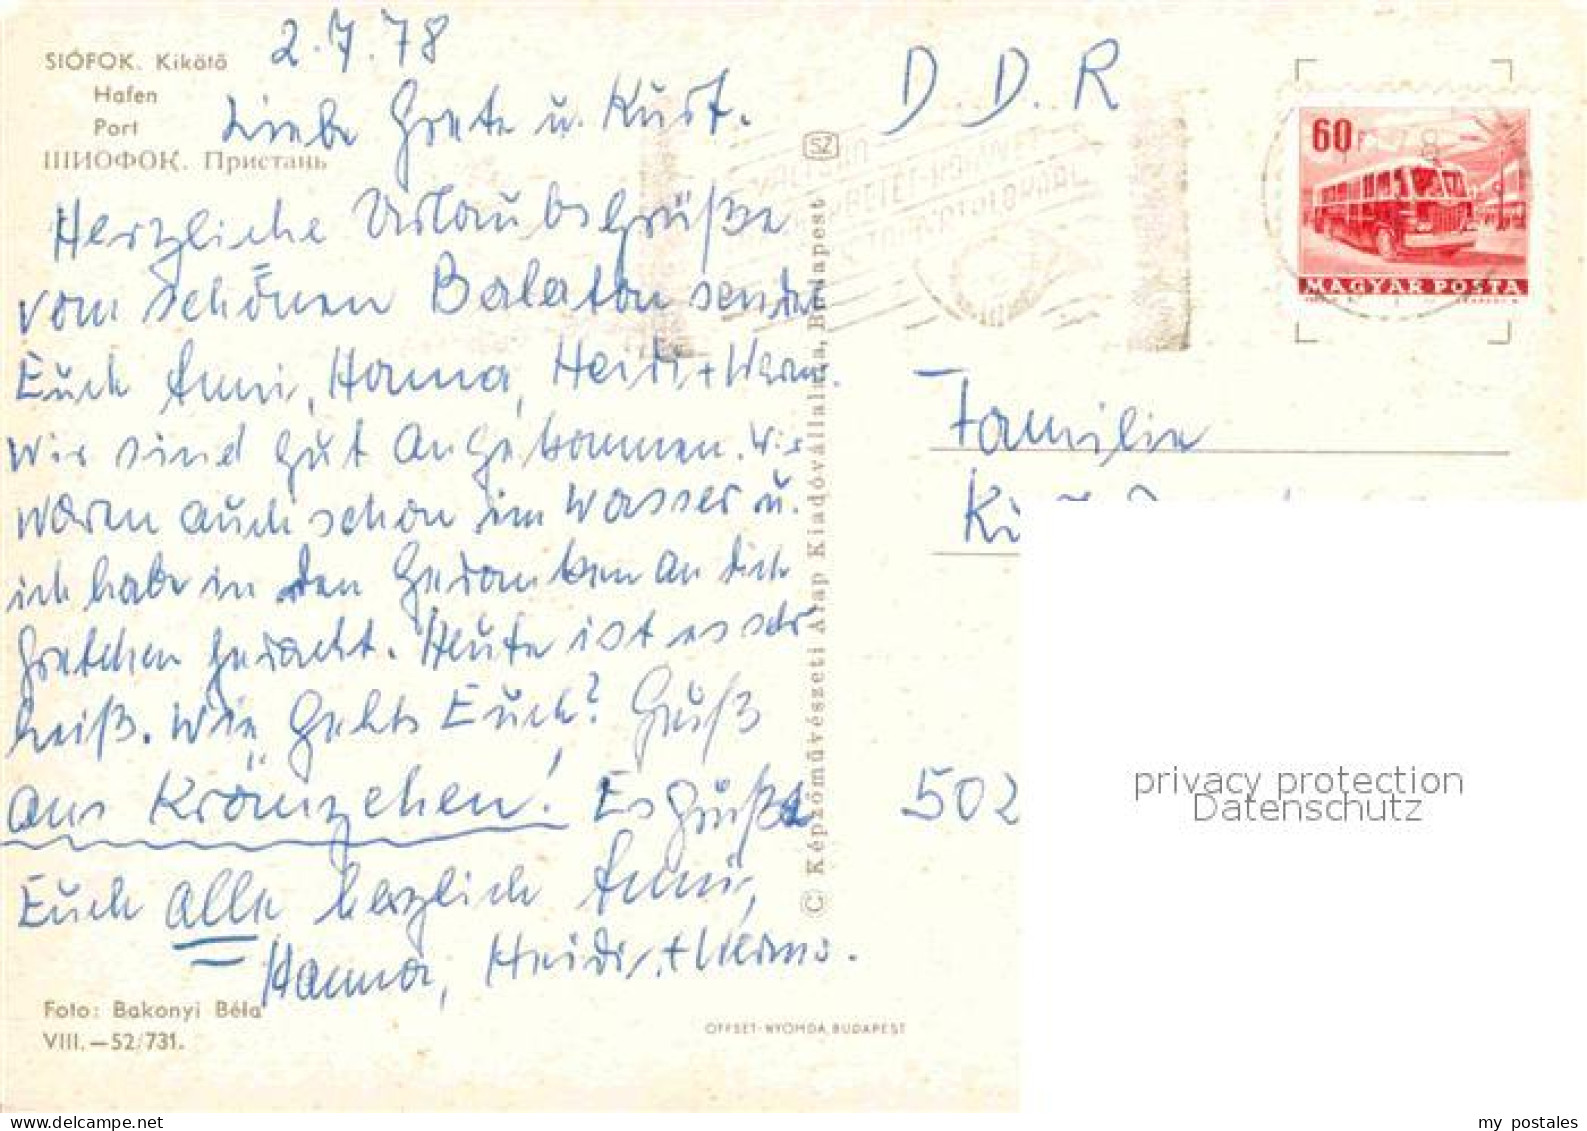 SIÓFOK. Kikötő
Hafen
Port
ШИОФОК. Пристань
2.7.78
Liebe Grete u. Kurt.
Herzliche Urlaubsgrüße
vom schönen Balaton sendet
Euch Anni, Hanna, Heidi + Werner.
Wir sind gut angekommen. Wir
waren auch schon im Wasser u.
ich habe in den Gedanken an dich
Gretchen gedacht. Heute ist es sehr
heiß. Wie gehts Euch? Gruß
ans Kränzchen! Es grüßt
Euch alle herzlich Anni,
Hanna, Heidi, + Werner.
Foto: Bakonyi Béla
VIII.—52/731.
OFFSET-NYOMDA, BUDAPEST
SZ
© Képzőművészeti Alap Kiadóvállalata, Budapest
D.D.R
60 F
MAGYAR POSTA
Familie
502
privacy protection
Datenschutz
my postales